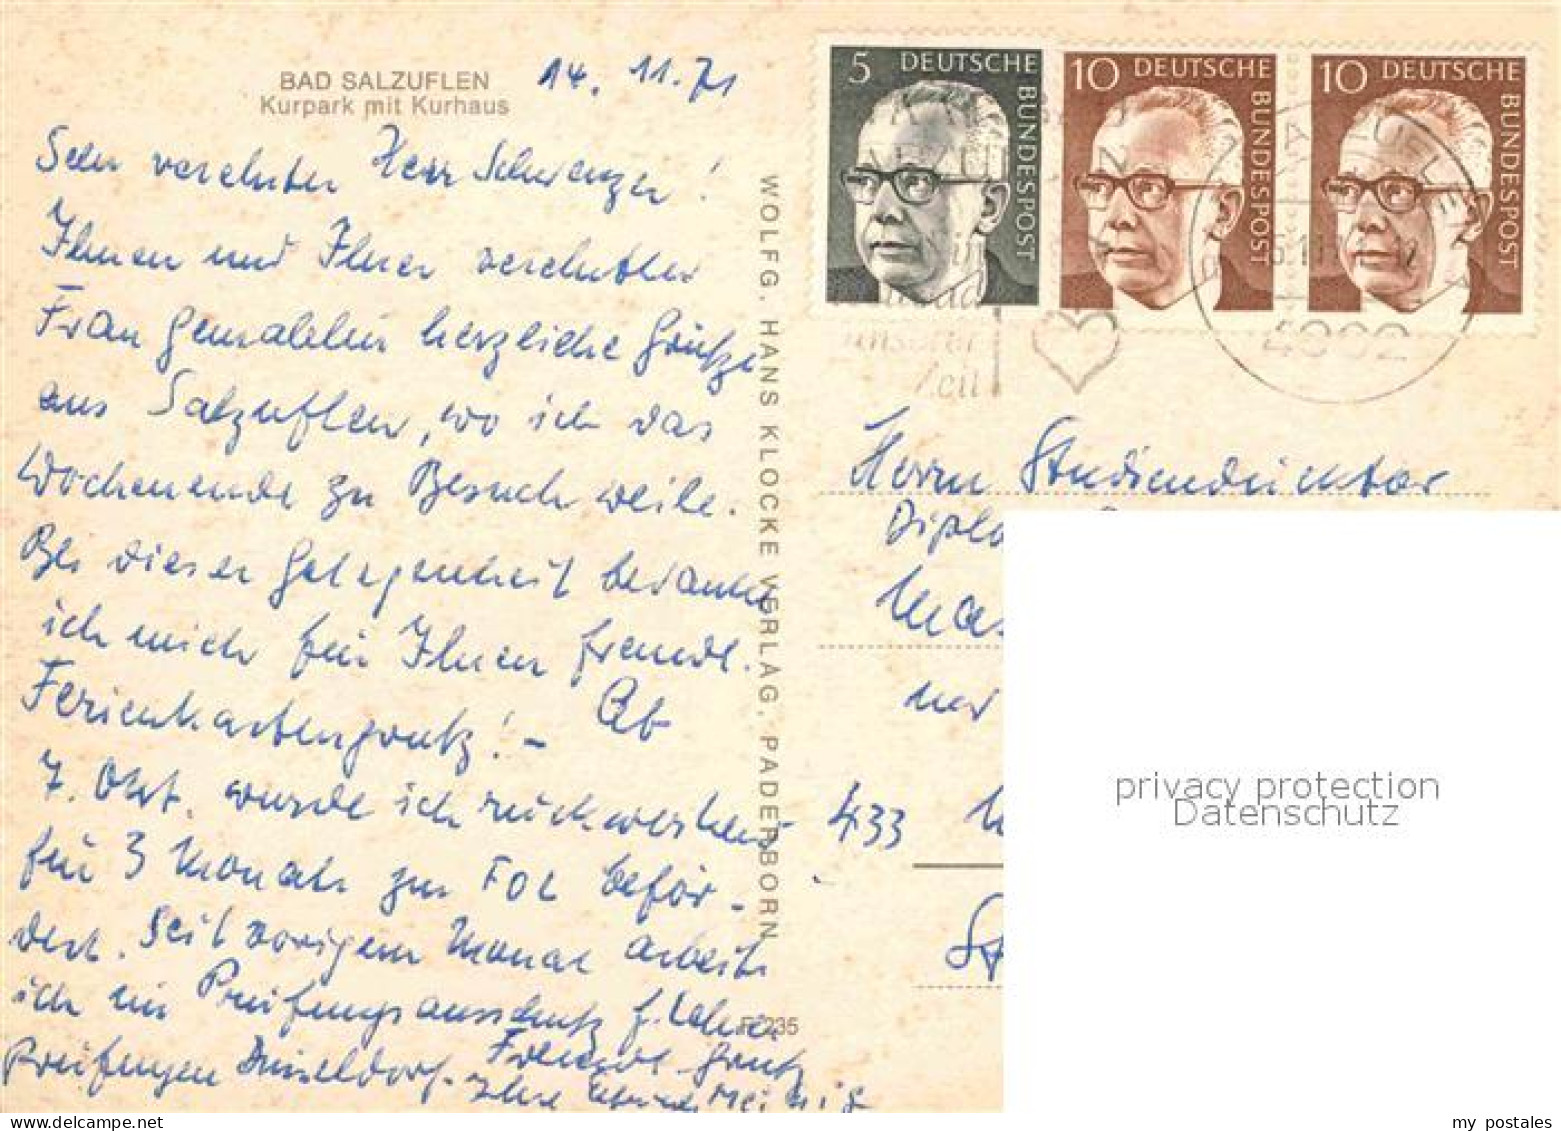 BAD SALZUFLEN
Kurpark mit Kurhaus
14. 11. 71
Sehr verehrter Herr Schwenzer!
Ihnen und Ihrer verehrten
Frau Gemahlin herzliche Grüße
aus Salzuflen, wo ich das
Wochenende zu Besuch weile.
Bei dieser Gelegenheit bedanke
ich mich für Ihren freundl.
Ferienkartengruß! - Ab
7. Okt. wurde ich rückwirkend
für 3 Monate zum FOL beför-
dert. Seit vorigem Monat arbeite
ich im Prüfungsausschuß f. Lehrer
Prüfungen Düsseldorf. Freundl. Gruß
Ihre
WOLFG. HANS KLOCKE VERLAG, PADERBORN
235
5 DEUTSCHE BUNDESPOST
10 DEUTSCHE BUNDESPOST
10 DEUTSCHE BUNDESPOST
unserer
Zeit
4902
Herrn Studiendirektor
433
privacy protection
Datenschutz
my postales